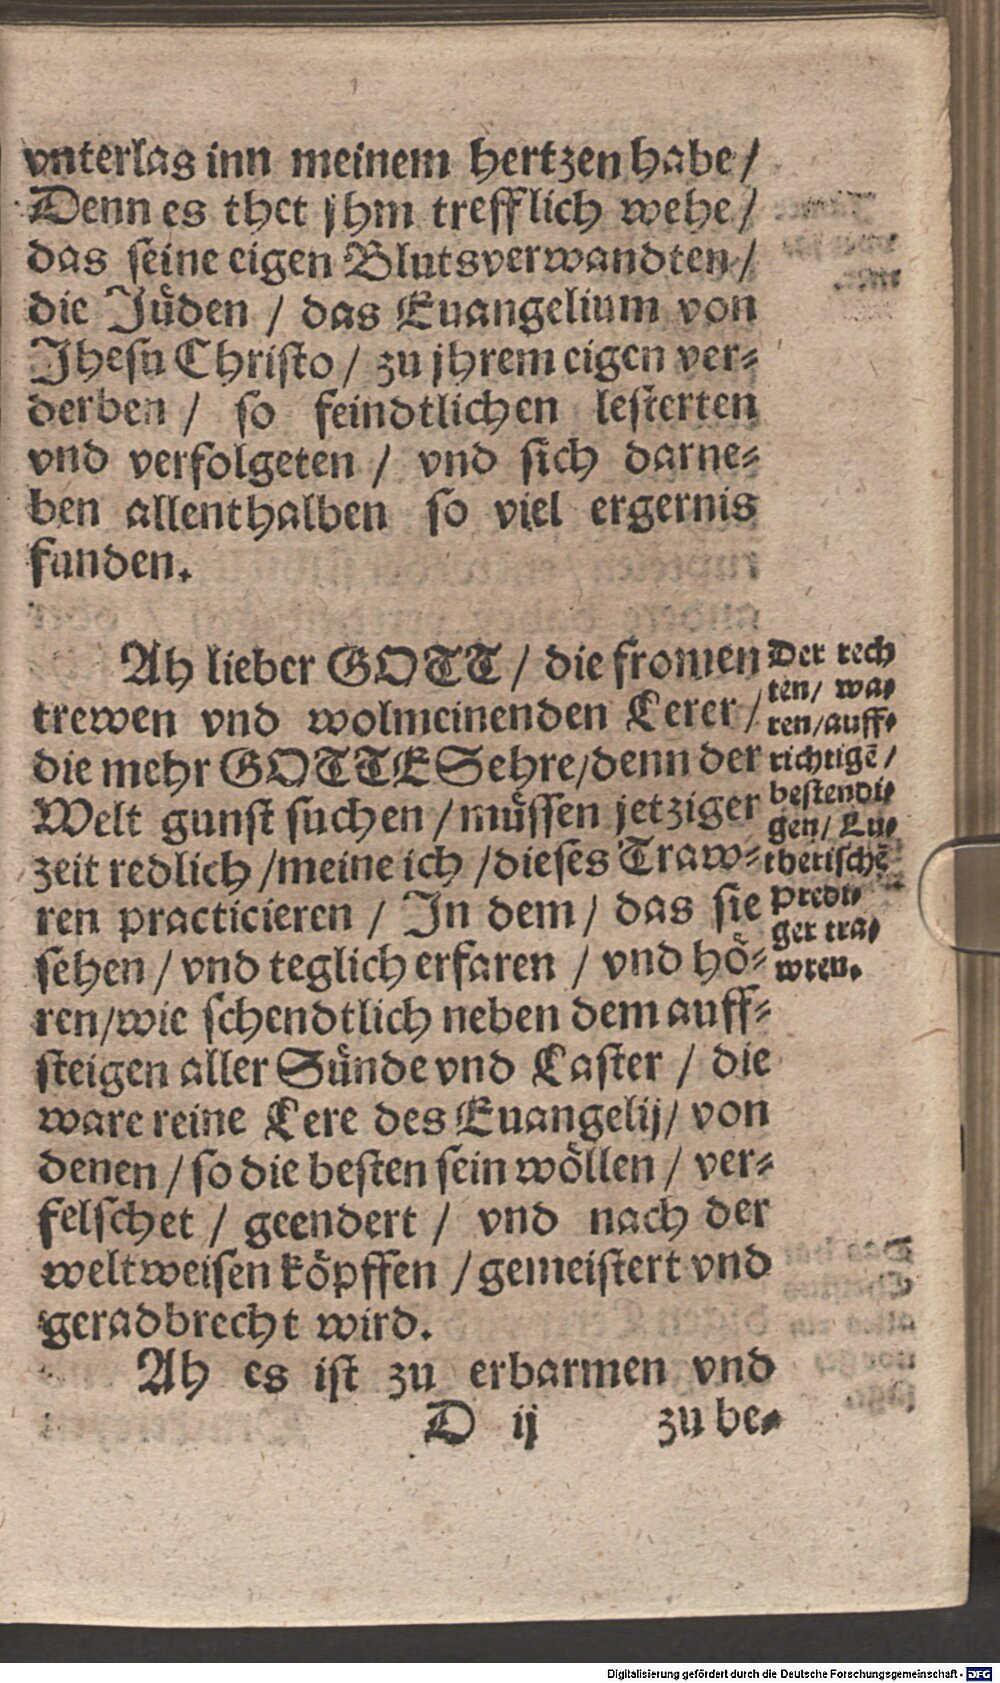 vnterlas inn meinem hertzen habe /
Denn es thet jhm trefflich wehe /
das seine eigen Blutsverwandten /
die Jüden / das Euangelium von
Jhesu Christo / zu jhrem eigen ver-
derben / so feindtlichen lesterten
vnd verfolgeten / vnd sich darne-
ben allenthalben so viel ergernis
funden.
Ah lieber GOTT / die fromen
trewen vnd wolmeinenden Lerer /
die mehr GOTTES ehre / denn der
Welt gunst suchen / müssen jetziger
zeit redlich / meine ich / dieses Traw-
ren practicieren / In dem / das sie
sehen / vnd teglich erfaren / vnd hö-
ren / wie schendtlich neben dem auff-
steigen aller Sünde vnd Laster / die
ware reine Lere des Euangelij / von
denen / so die besten sein wöllen / ver-
felschet / geendert / vnd nach der
weltweisen köpffen / gemeistert vnd
geradbrecht wird.
Ah es ist zu erbarmen vnd
D ij zu be-
Der rech
ten / wa-
ren / auff-
richtigē /
bestendi-
gen / Lu-
therischē
Predi-
ger tra-
wren.
Digitalisierung gefördert durch die Deutsche Forschungsgemeinschaft - DFG